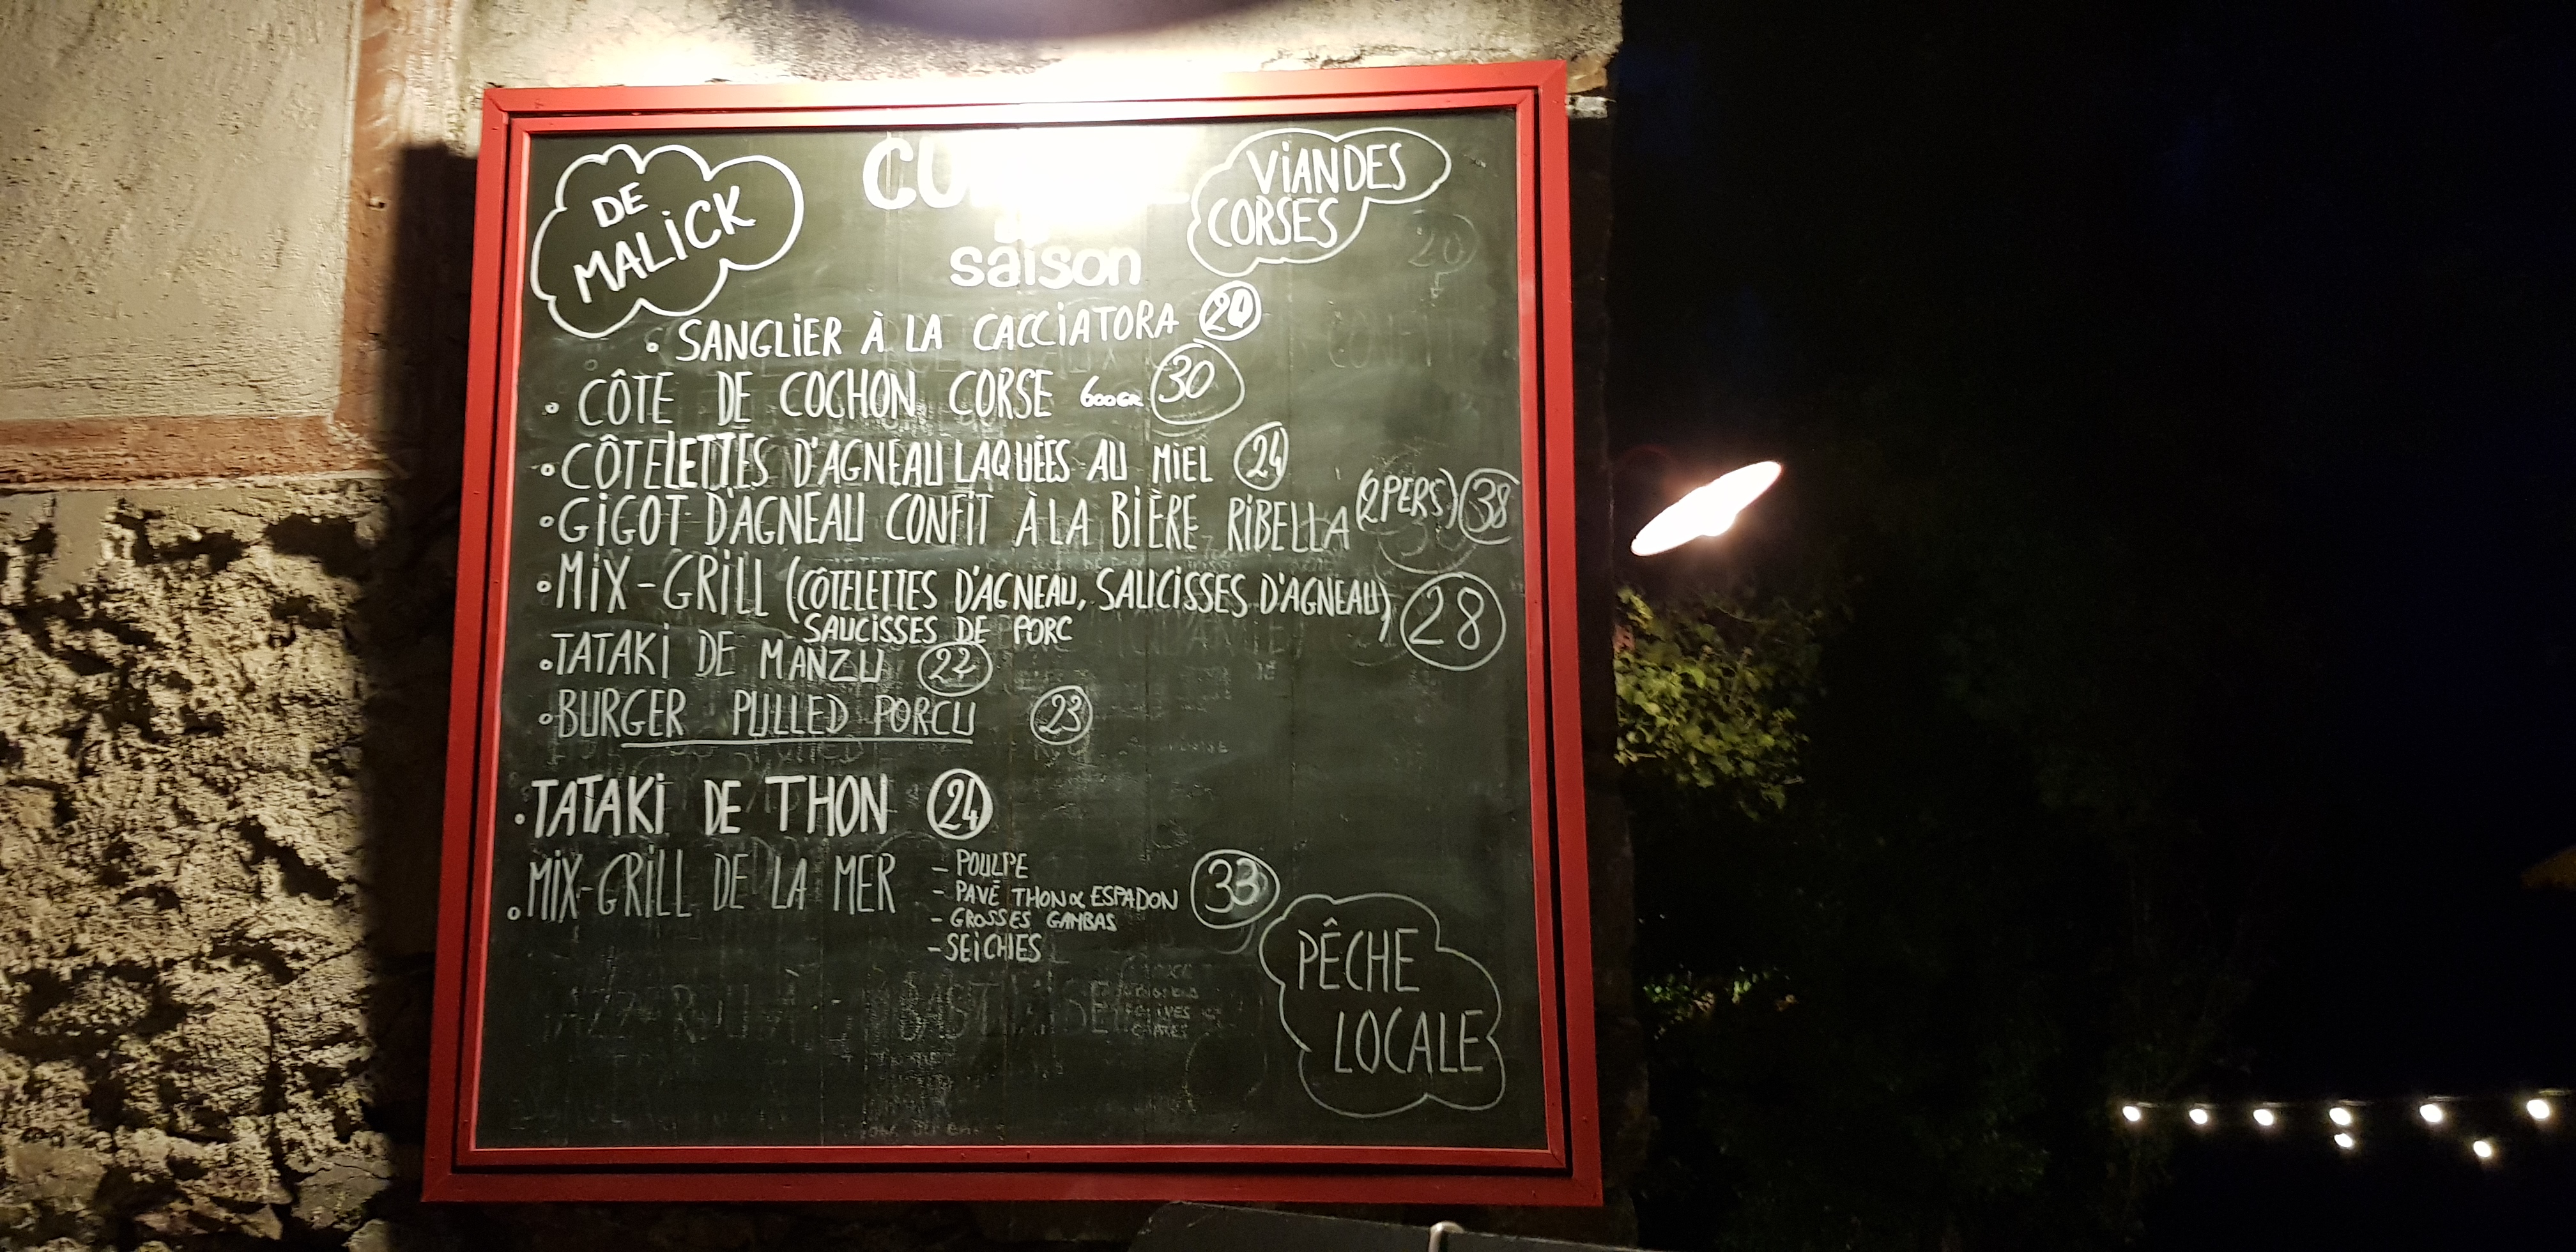 DE
MALiCK
saison
ViANDES
CORSES
SANGLiER À LA CACCiATORA
CÔTE DE COCHON CORSE 600GR 30
CÔTELETTES D'AGNEAU LAQUÉES AU MiEL 24
GiGOT D'AGNEAU CONFiT À LA BiÈRE RiBELLA (2PERS) 38
MiX-GRiLL (CÔTELETTES D'AGNEAU, SAUCiSSES D'AGNEAU) 28
SAUCiSSES DE PORC
TATAKi DE MANZU 22
BURGER PULLED PORCU 23
TATAKi DE THON 24
MiX-GRiLL DE LA MER 33
- POULPE
- PAVÉ THON & ESPADON
- GROSSES GAMBAS
- SEiCHES
PÊCHE
LOCALE